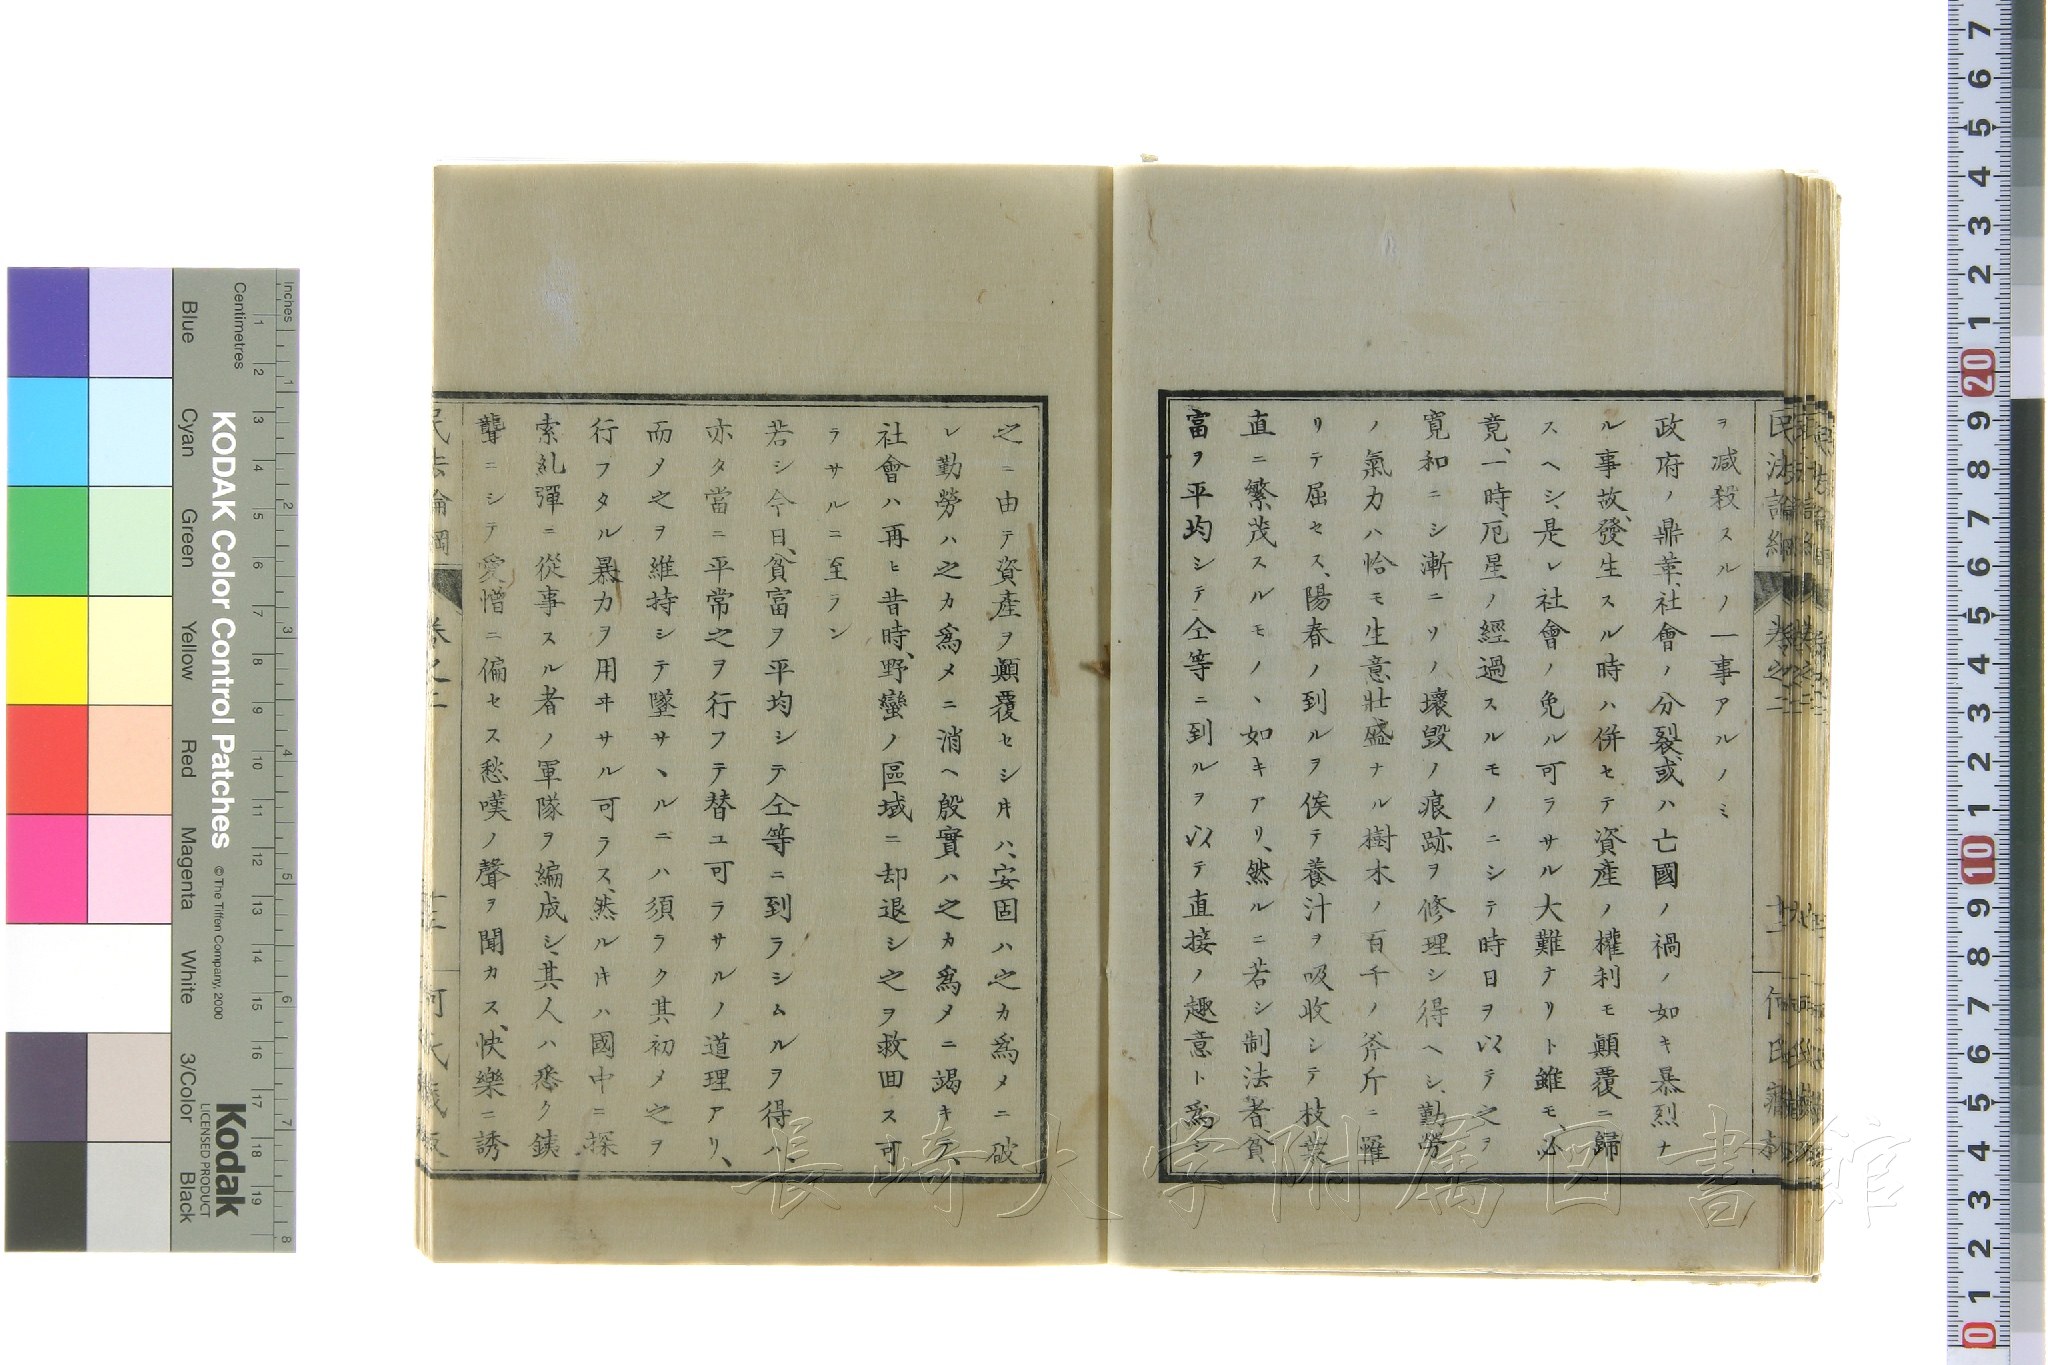 ヲ減殺スルノ一事アルノミ
政府ノ鼎革、社會ノ分裂、或ハ亡國ノ禍ノ如キ暴烈ナ
ル事故、發生スル時ハ併セテ資產ノ權利モ顚覆ニ歸
スヘシ、是レ社會ノ免ル可ラサル大難ナリト雖モ、必
竟、一時、厄星ノ經過スルモノニシテ時日ヲ以テ之ヲ
寛和ニシ漸ニソノ壞毀ノ痕跡ヲ修理シ得ヘシ、勤勞
ノ氣力ハ恰モ生意壯盛ナル樹木ノ百千ノ斧斤ニ罹
リテ屈セス、陽春ノ到ルヲ俟テ養汁ヲ吸收シテ枝葉
直ニ繁茂スルモノヽ如キアリ、然ルニ若シ制法者、貧
富ヲ平均シテ仝等ニ到ルヲ以テ直接ノ趣意ト爲シ
民法論綱
卷之二
十二
何氏藏板
之ニ由テ資產ヲ顚覆セシ片ハ、安固ハ之カ爲メニ破
レ勤勞ハ之カ爲メニ消ヘ殷實ハ之カ爲メニ竭キテ、
社會ハ再ヒ昔時、野蠻ノ區域ニ却退シ之ヲ救回ス可
ラサルニ至ラン
若シ今日、貧富ヲ平均シテ仝等ニ到ラシムルヲ得ハ、
亦タ當ニ平常之ヲ行フテ替ユ可ラサルノ道理アリ、
而メ之ヲ維持シテ墜サヽルニハ須ラク其初メ之ヲ
行フタル暴力ヲ用ヰサル可ラス、然ル片ハ國中ニ探
索糺彈ニ從事スル者ノ軍隊ヲ編成シ、其人ハ悉ク銕
聾ニシテ愛憎ニ偏セス愁嘆ノ聲ヲ聞カス、快樂ニ誘
民法論綱
卷之二
十三
何氏藏板
長崎大学附属図書館
KODAK Color Control Patches
© The Tiffen Company, 2000
Kodak
LICENSED PRODUCT
Inches
Centimetres
Blue
Cyan
Green
Yellow
Red
Magenta
White
3/Color
Black